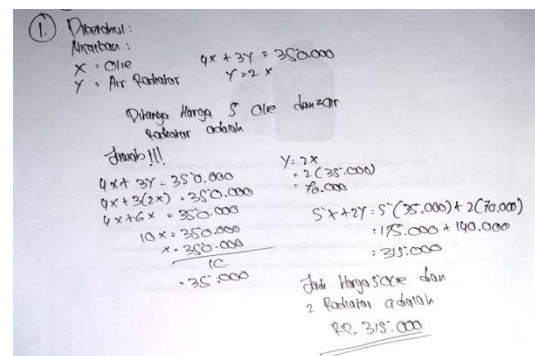 1. Diketahui :
Misalkan :
X = Olie
Y = Air Radiator
4x + 3y = 350.000
Y = 2 x
Ditanya Harga 5 Olie dan 2 air
Radiator adalah
Jawab !!!
4x + 3y = 350.000
4x + 3(2x) = 350.000
4x + 6x = 350.000
10x = 350.000
x = 350.000
10
= 35.000
Y = 2x
= 2 (35.000)
= 70.000
5x + 2y = 5 (35.000) + 2 (70.000)
= 175.000 + 140.000
= 315.000
Jadi Harga 5 Olie dan
2 Radiator adalah
RP. 315.000